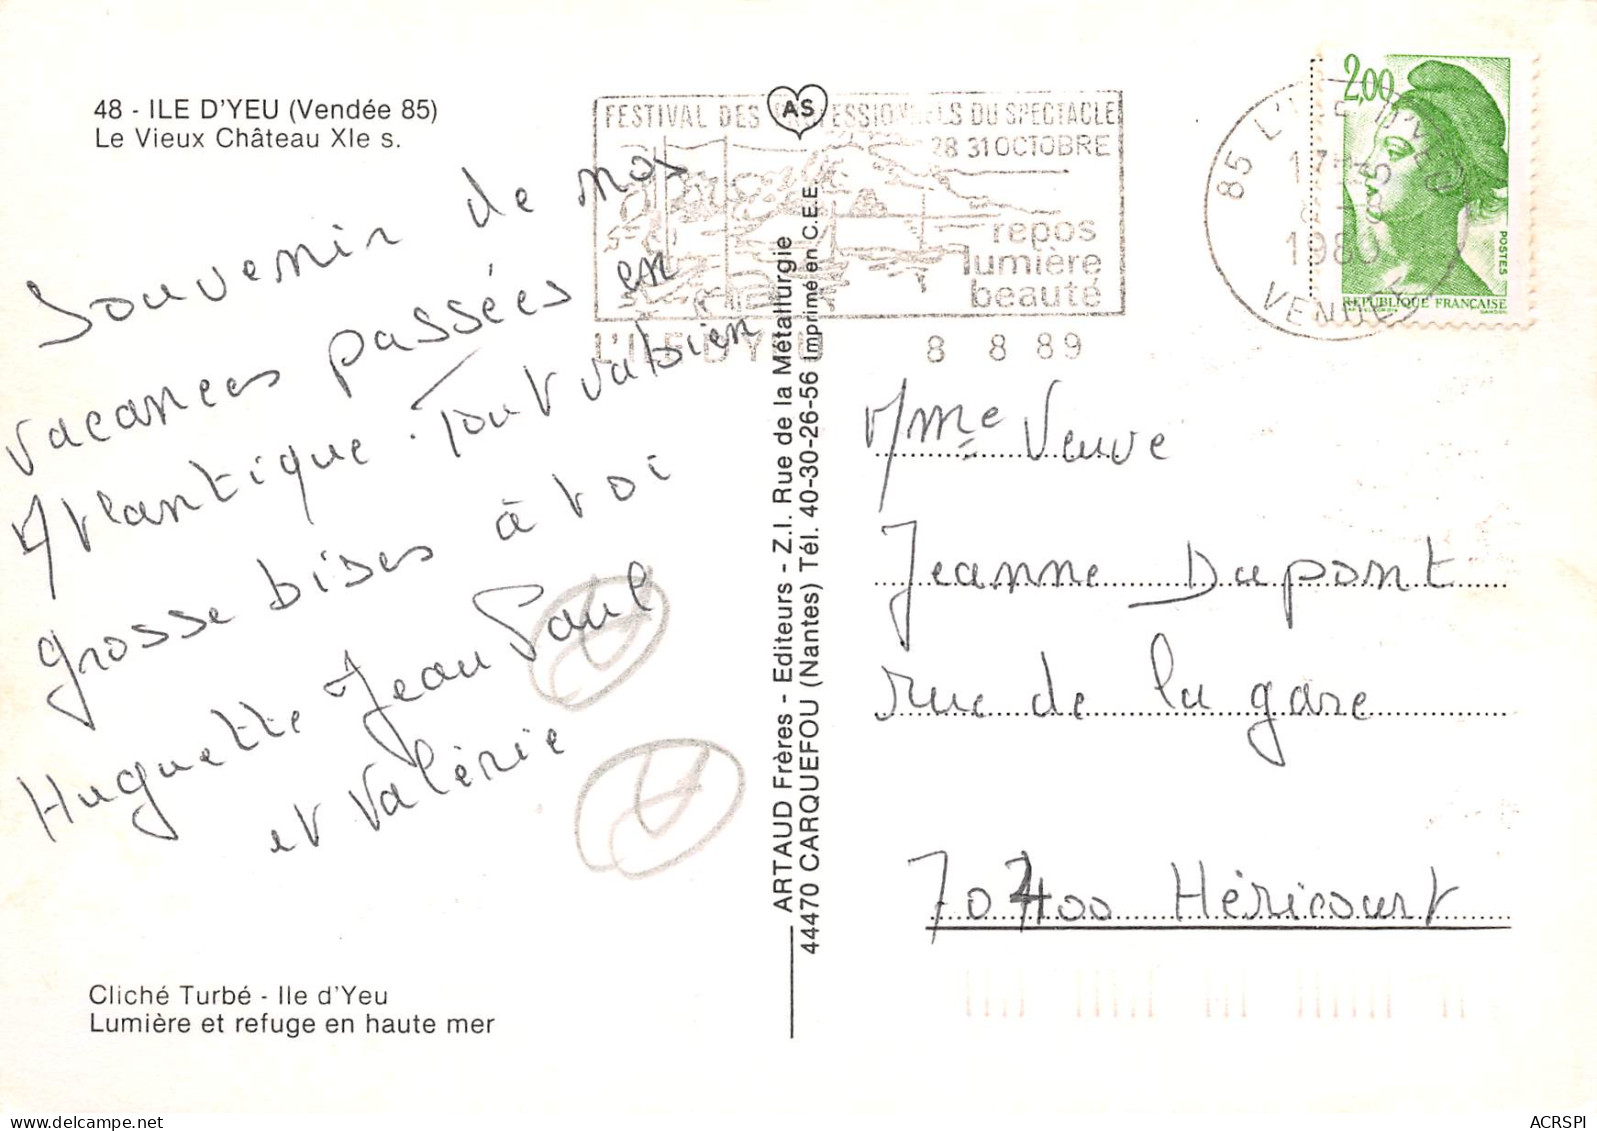 48 - ILE D'YEU (Vendée 85)
Le Vieux Château XIe s.
Souvenir de nos
vacances passées en
Atlantique. Tout va bien
grosse bises à toi
Huguette Jean Paul
et Valérie
Cliché Turbé - Ile d'Yeu
Lumière et refuge en haute mer
AS
FESTIVAL DES PROFESSIONNELS DU SPECTACLE
28 31 OCTOBRE
repos
lumière
beauté
L'ILE D'YEU 8 8 89
ARTAUD Frères - Editeurs - Z.I. Rue de la Métallurgie
44470 CARQUEFOU (Nantes) Tél. 40-30-26-56 Imprimé en C.E.E.
85 L'ILE D'YEU
17H
1989
VENDEE
2,00
POSTES
REPUBLIQUE FRANÇAISE
GANDON
Mme Veuve
Jeanne Dupont
rue de la gare
70400 Héricourt
ACRSPI